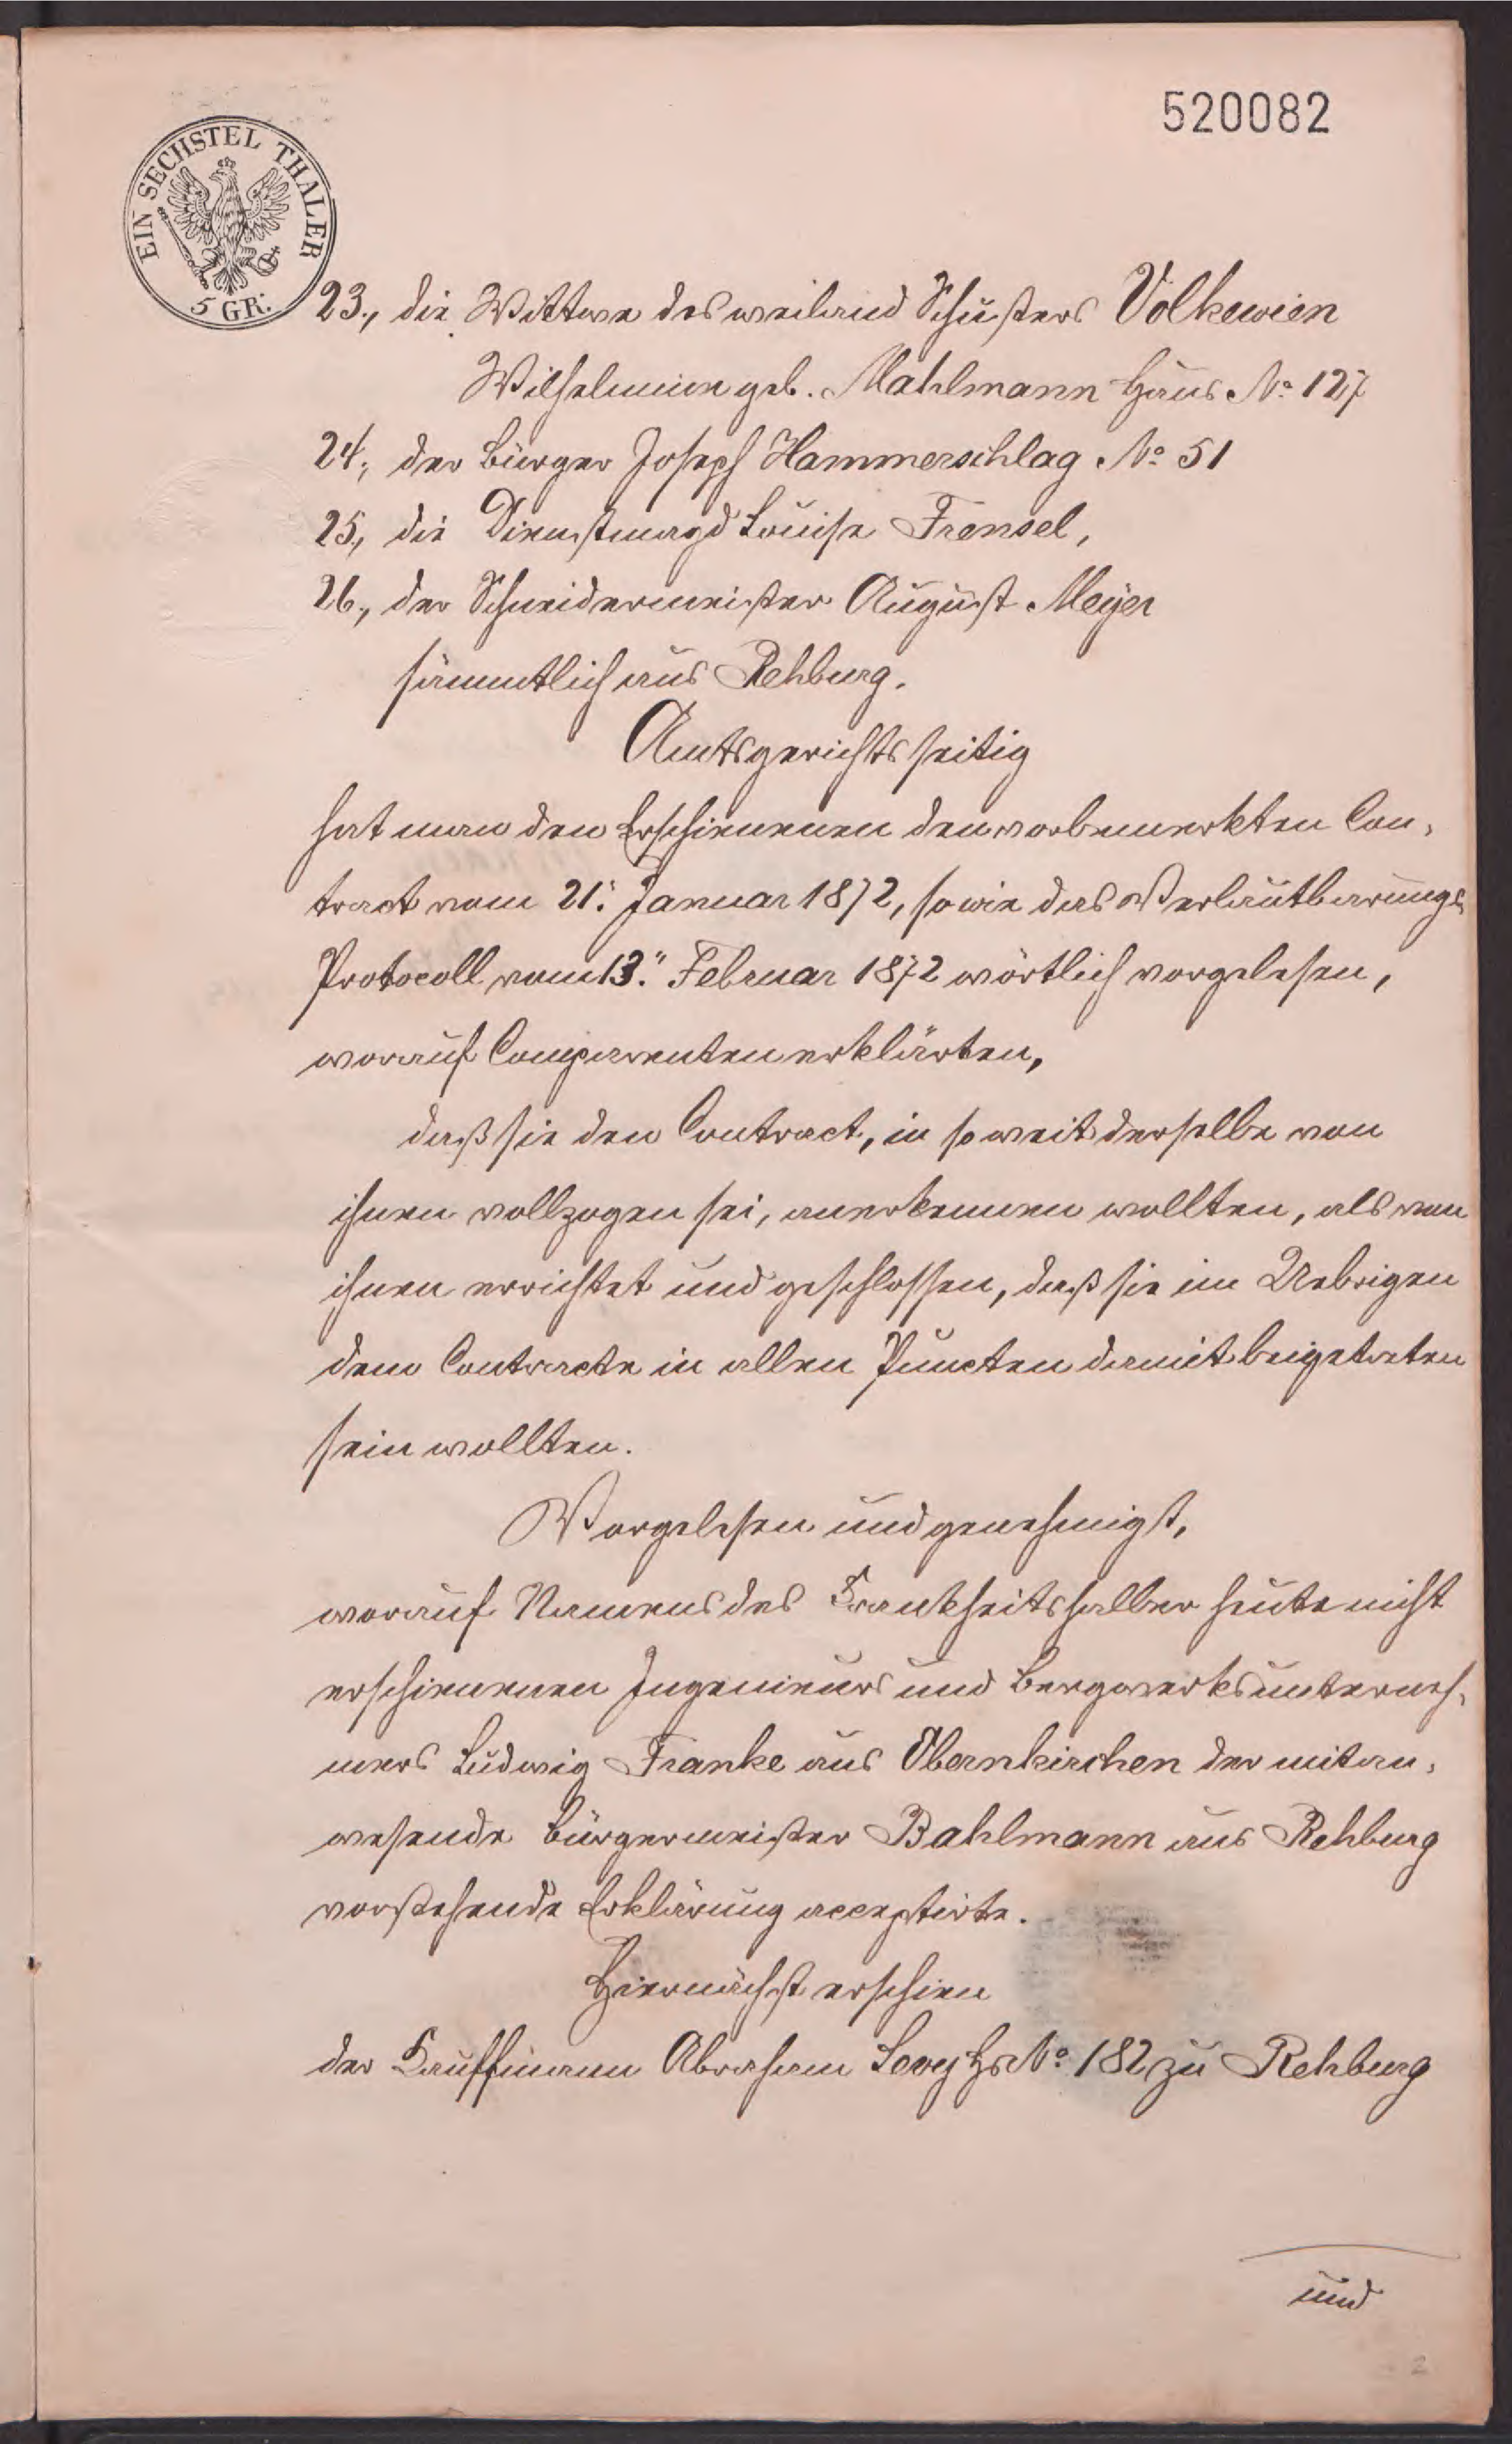 520082
EIN SECHSTEL THALER
5 GR.
23., die Wittwe des weiland Schusters Volkewien
Wilhelmine geb. Mahlmann Haus No 127
24., der Bürger Joseph Hammerschlag No 51
25., die Dienstmagd Louise Frensel,
26., der Schneidermeister August Meyer
sämmtlich aus Rehburg.
Amtsgerichtsseitig
hat man den Erschienenen den vorbemerkten Con-
tract vom 21. Januar 1872, sowie das Verlautbarungs
Protocoll vom 13. Februar 1872 wörtlich vorgelesen,
worauf Comparenten erklärten,
daß sie den Contract, in soweit derselbe von
ihnen vollzogen sei, anerkennen wollten, als von
ihnen errichtet und geschlossen, daß sie im Uebrigen
dem Contracte in allen Puncten damit beigetreten
sein wollten.
Vorgelesen und genehmigt,
worauf Namens des Krankheitshalber heute nicht
erschienenen Ingenieurs und Bergwerksunterneh-
mers Ludwig Franke aus Obernkirchen der mitan-
wesende Bürgermeister Bahlmann aus Rehburg
vorstehende Erklärung acceptirte.
Hiernächst erschien
der Kauffmann Abraham Levy Hs No 182 zu Rehburg
und
2